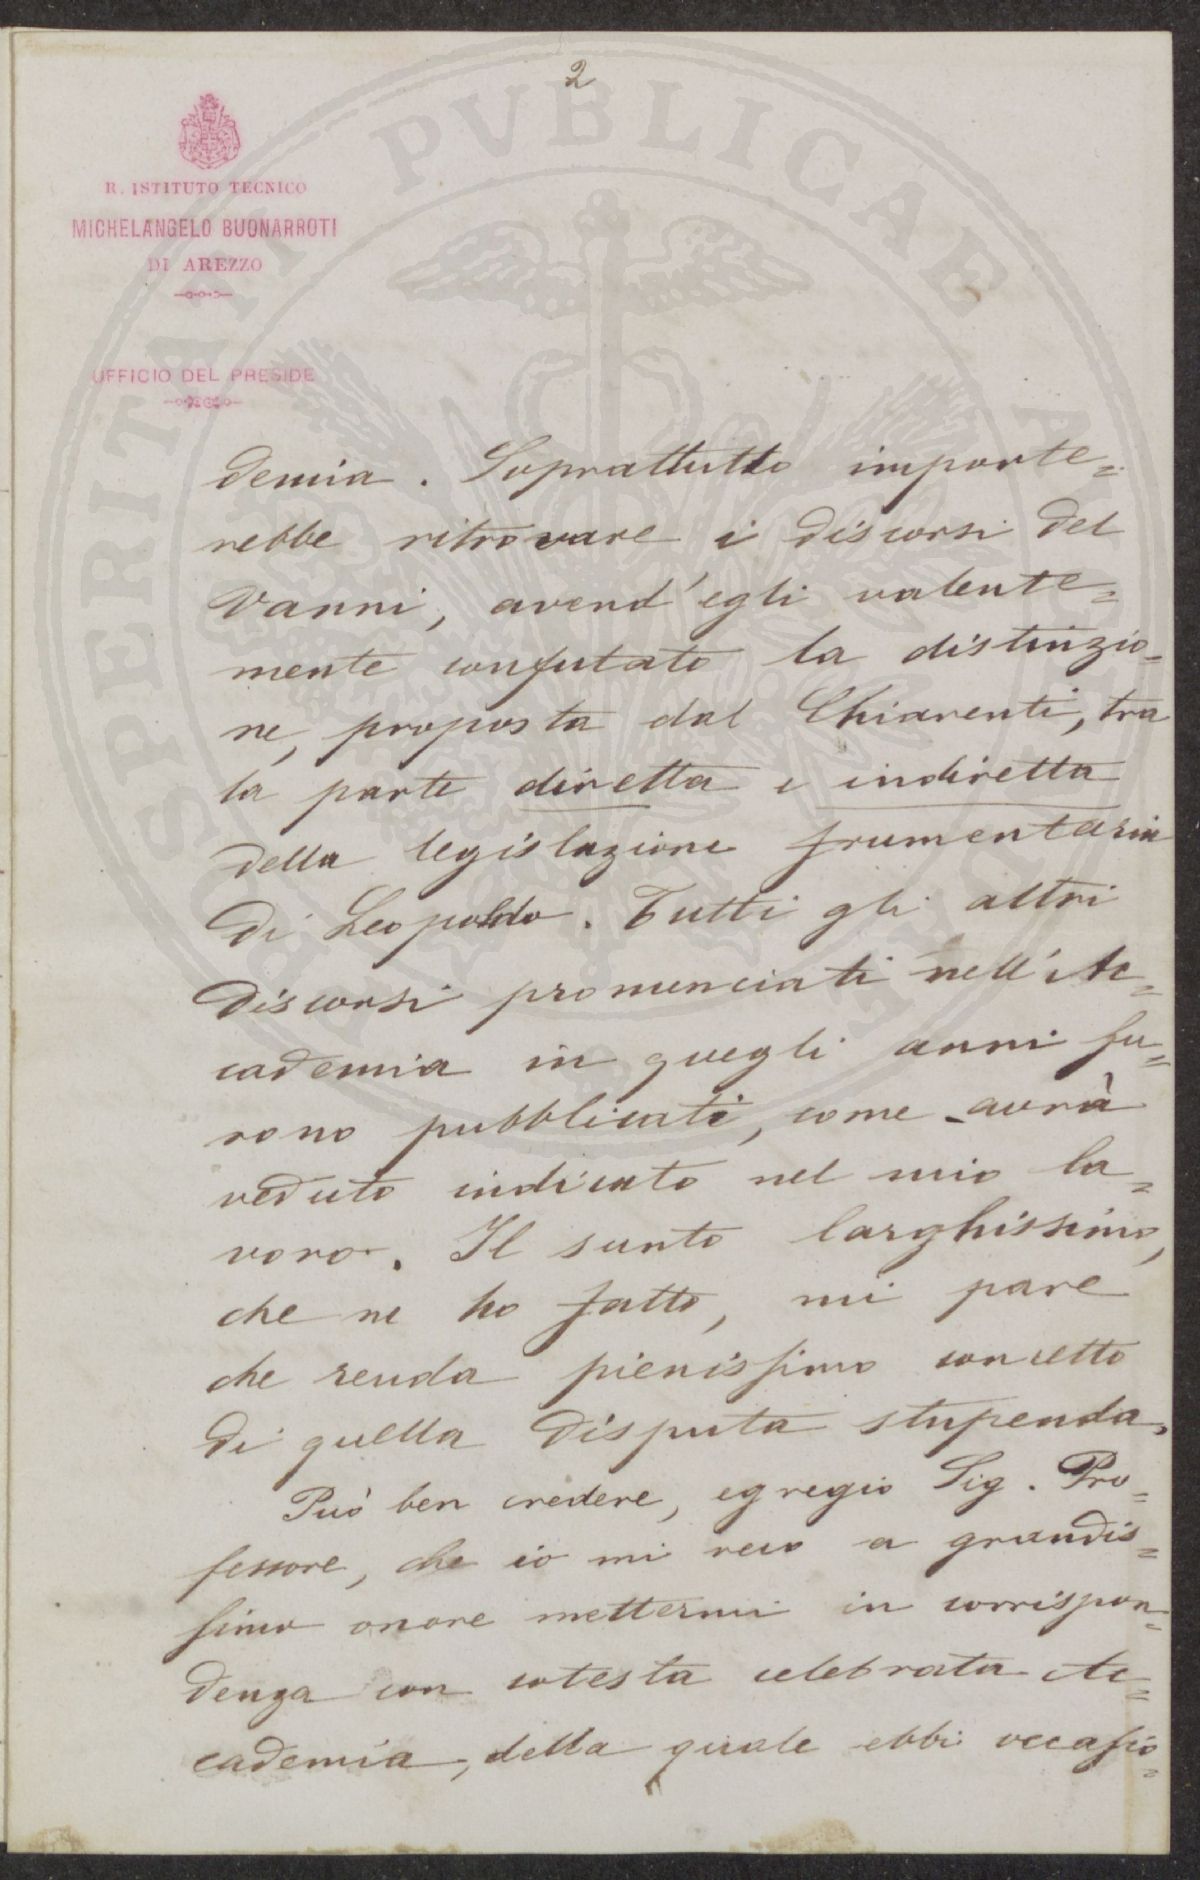 2
R. ISTITUTO TECNICO
MICHELANGELO BUONARROTI
DI AREZZO
UFFICIO DEL PRESIDE
PROSPERITATI PVBLICAE AVGENDAE
demia. Soprattutto importe=
rebbe ritrovare i discorsi del
Vanni, avend'egli valente=
mente confutato la distinzio=
ne, proposta dal Chiarenti, tra
la parte diretta e indiretta
della legislazione frumentaria
di Leopoldo. Tutti gli altri
discorsi pronunciati nell'Ac=
cademia in quegli anni fu=
rono pubblicati, come avrà
veduto indicato nel mio la=
voro. Il sunto larghissimo,
che ne ho fatto, mi pare
che renda pienissimo concetto
di quella disputa stupenda.
Può ben credere, egregio Sig. Pro=
fessore, che io mi reco a grandis=
simo onore mettermi in corrispon=
denza con cotesta celebrata Ac=
cademia, della quale ebbi occasio=